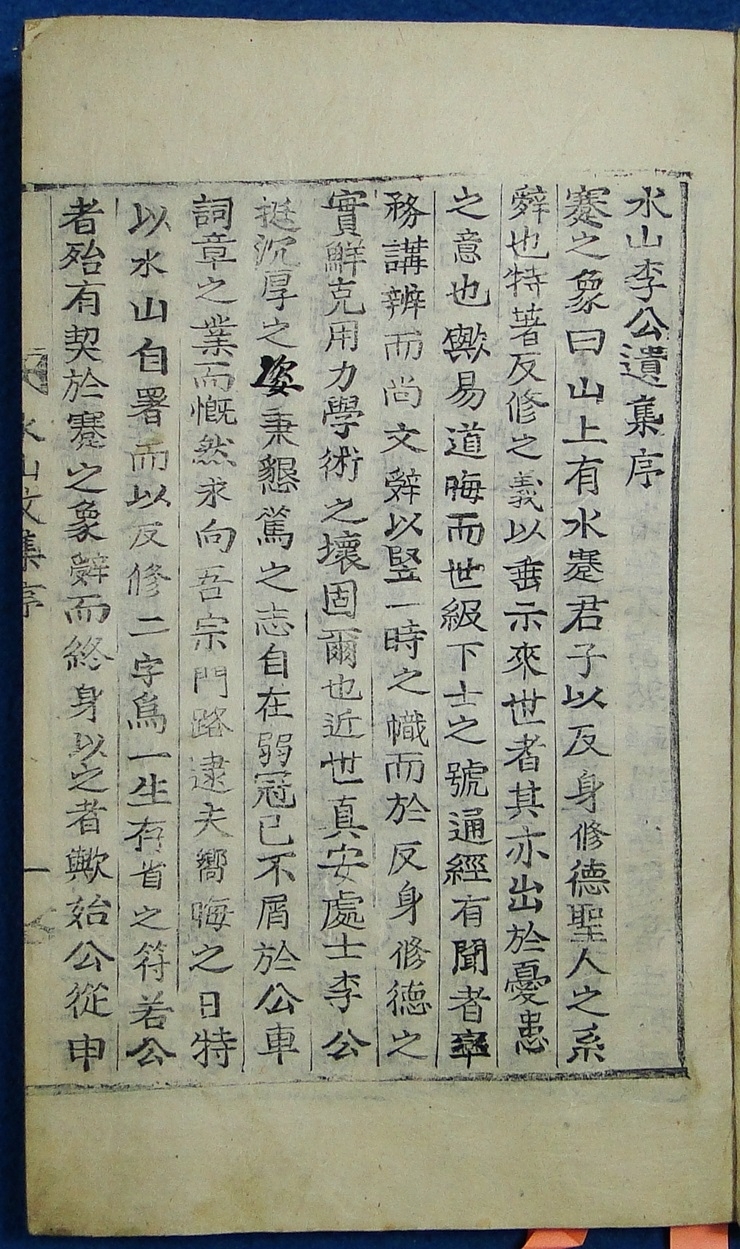 水山李公遺集序
蹇之象曰山上有水蹇君子以反身修德聖人之系
辭也特著反修之義以垂示來世者其亦出於憂患
之意也歟易道晦而世級下士之號通經有聞者率
務講辨而尚文辭以竪一時之幟而於反身修德之
實鮮克用力學術之壞固爾也近世真安處士李公
挺沉厚之姿秉懇篤之志自在弱冠已不屑於公車
詞章之業而慨然求向吾宗門路逮夫嚮晦之日特
以水山自署而以反修二字爲一生存省之符若公
者殆有契於蹇之象辭而終身以之者歟始公從申
水山文集序
一